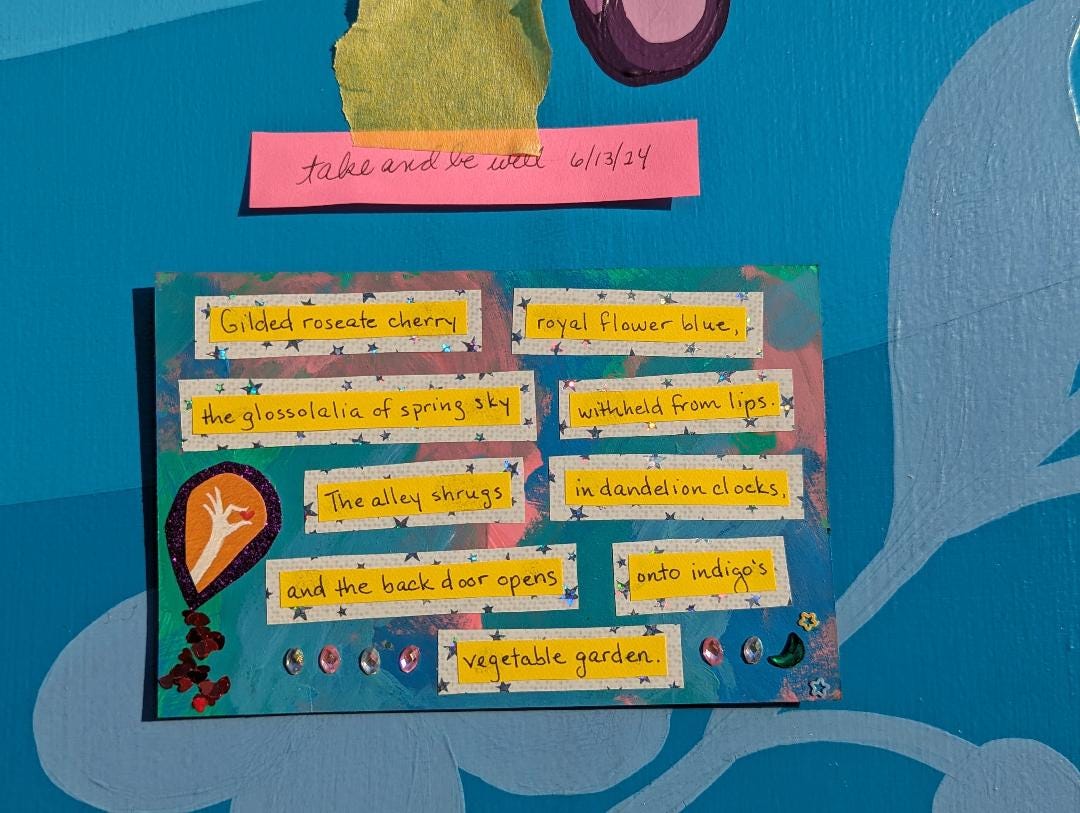 take and be well 6/13/24
Gilded roseate cherry royal flower blue,
the glossolalia of spring sky withheld from lips.
The alley shrugs in dandelion clocks,
and the back door opens onto indigo's
vegetable garden.